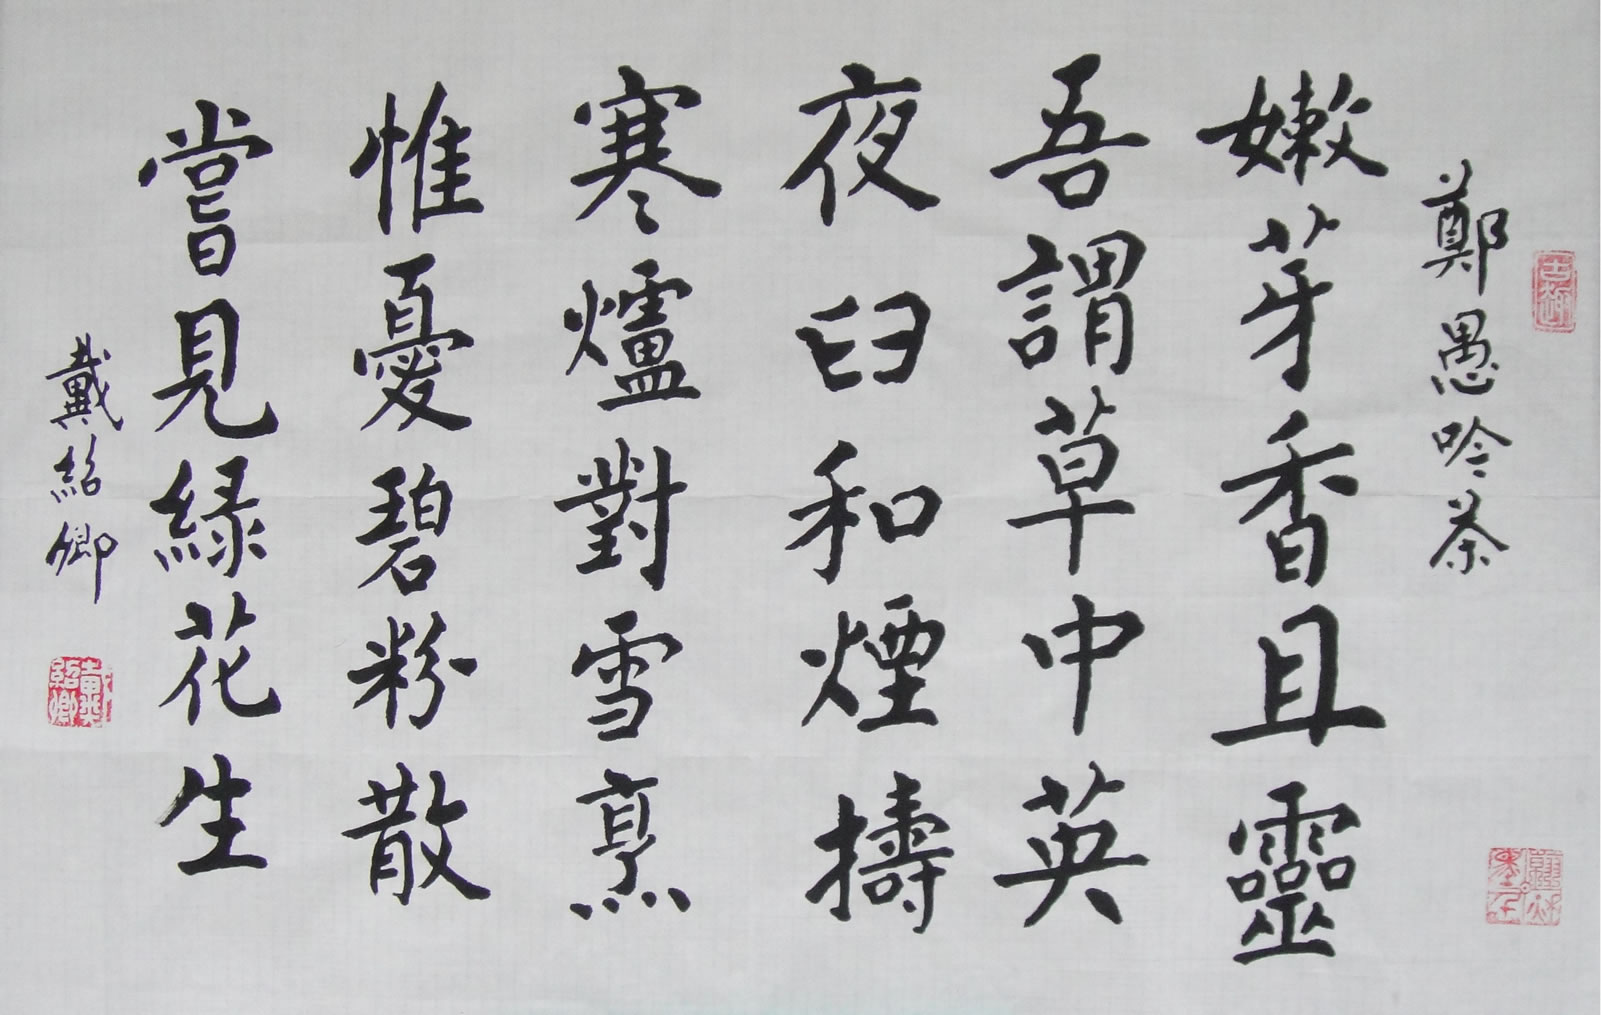 鄭愚吟茶
嫩芽香且靈
吾謂草中英
夜臼和煙擣
寒爐對雪烹
惟憂碧粉散
嘗見緑花生
戴紹卿
戴紹卿